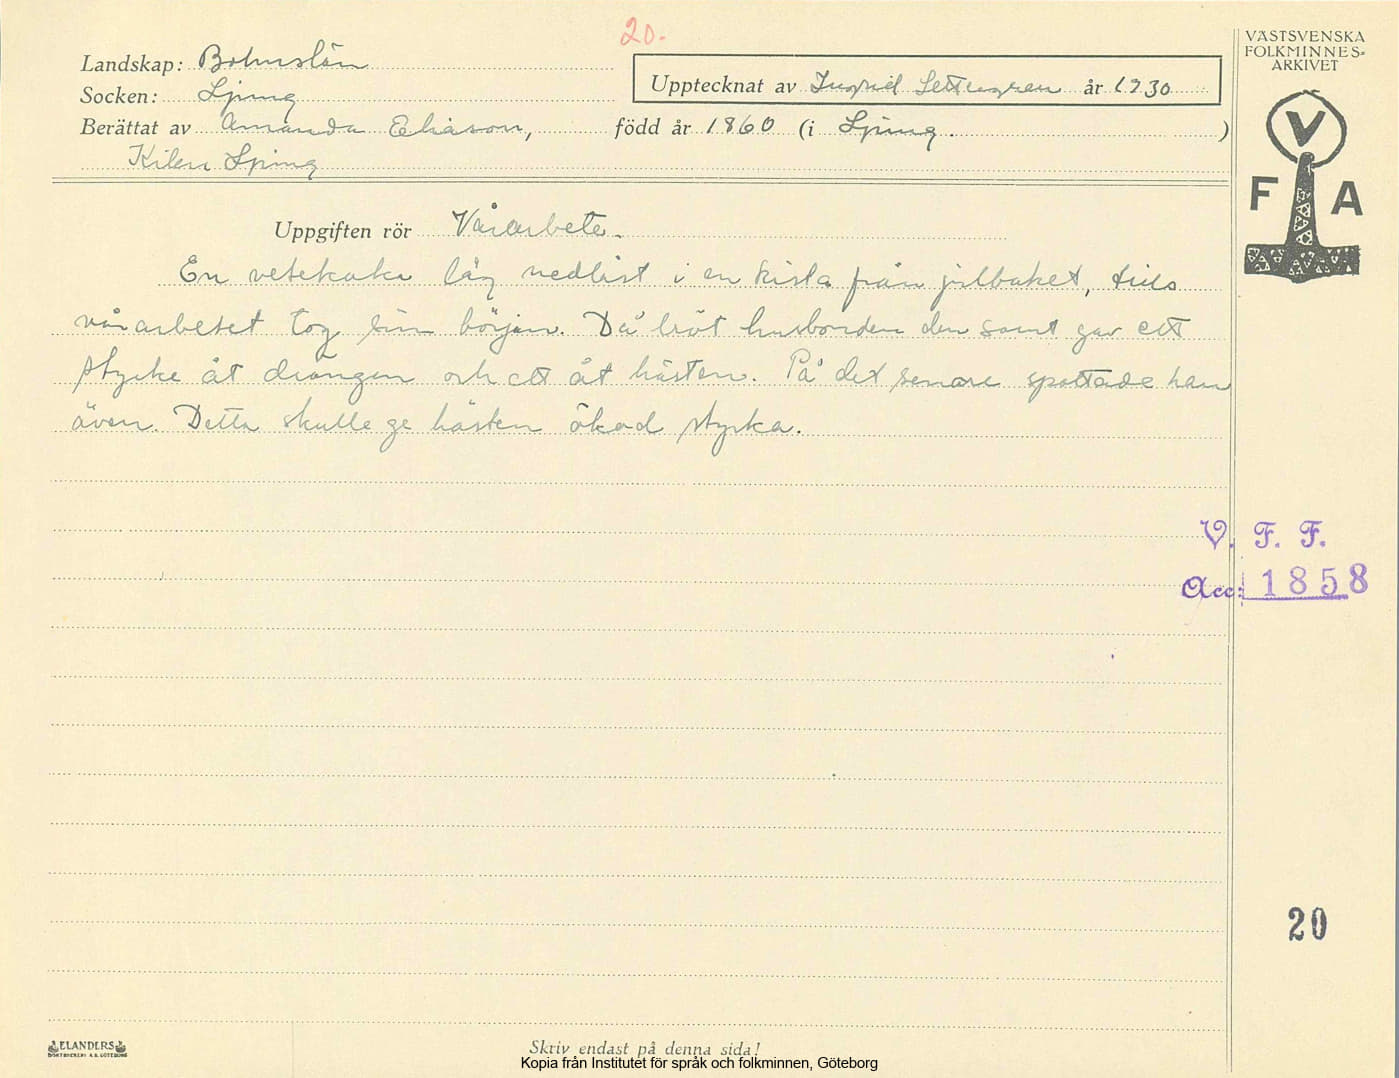 20.
VÄSTSVENSKA
FOLKMINNES-
ARKIVET
Landskap: Bohuslän
Socken: Ljung
Upptecknat av Ingrid Settergren år 1930
Berättat av Amanda Eliason, född år 1860 (i Ljung. )
Kilen Ljung
V
F A
Uppgiften rör Vårarbete.
En vetekaka låg nedläst i en kista från julbaket, tills
vårarbetet tog sin början. Då bröt husbonden den samt gav ett
stycke åt drängen och ett åt hästen. På det senare spottade han
även. Detta skulle ge hästen ökad styrka.
V. F. F.
Acc: 1858
20
ELANDERS
BOKTRYCKERI A.B. GÖTEBORG
Skriv endast på denna sida!
Kopia från Institutet för språk och folkminnen, Göteborg